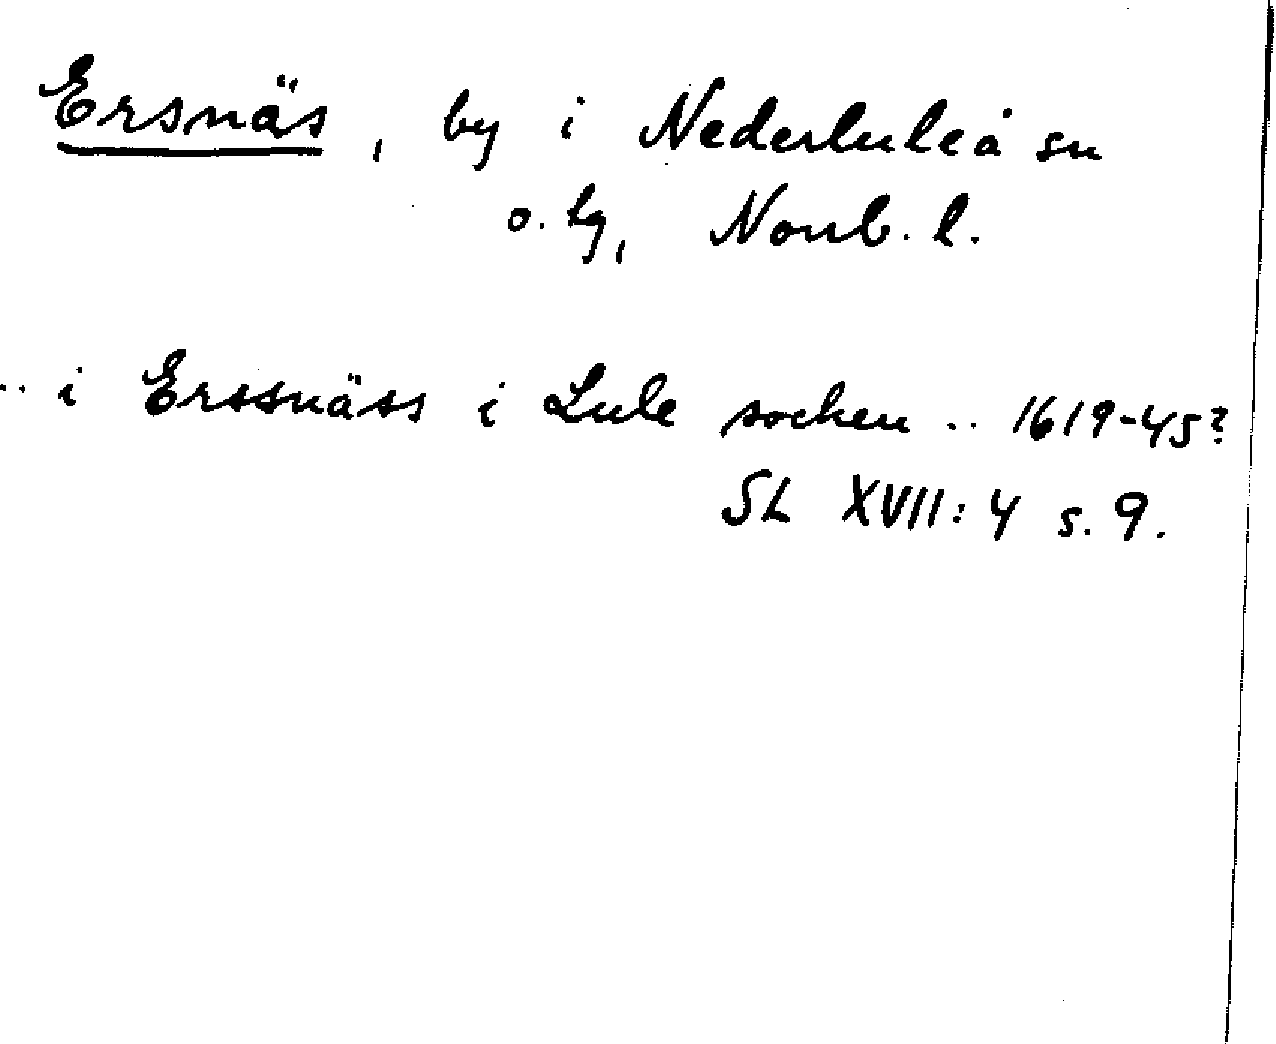 Ersnäs, by i Nederluleå sn
o. tg, Norrb. l.
.. i Erssnäss i Lule socken .. 1619-45?
SL XVII: 4 s. 9.